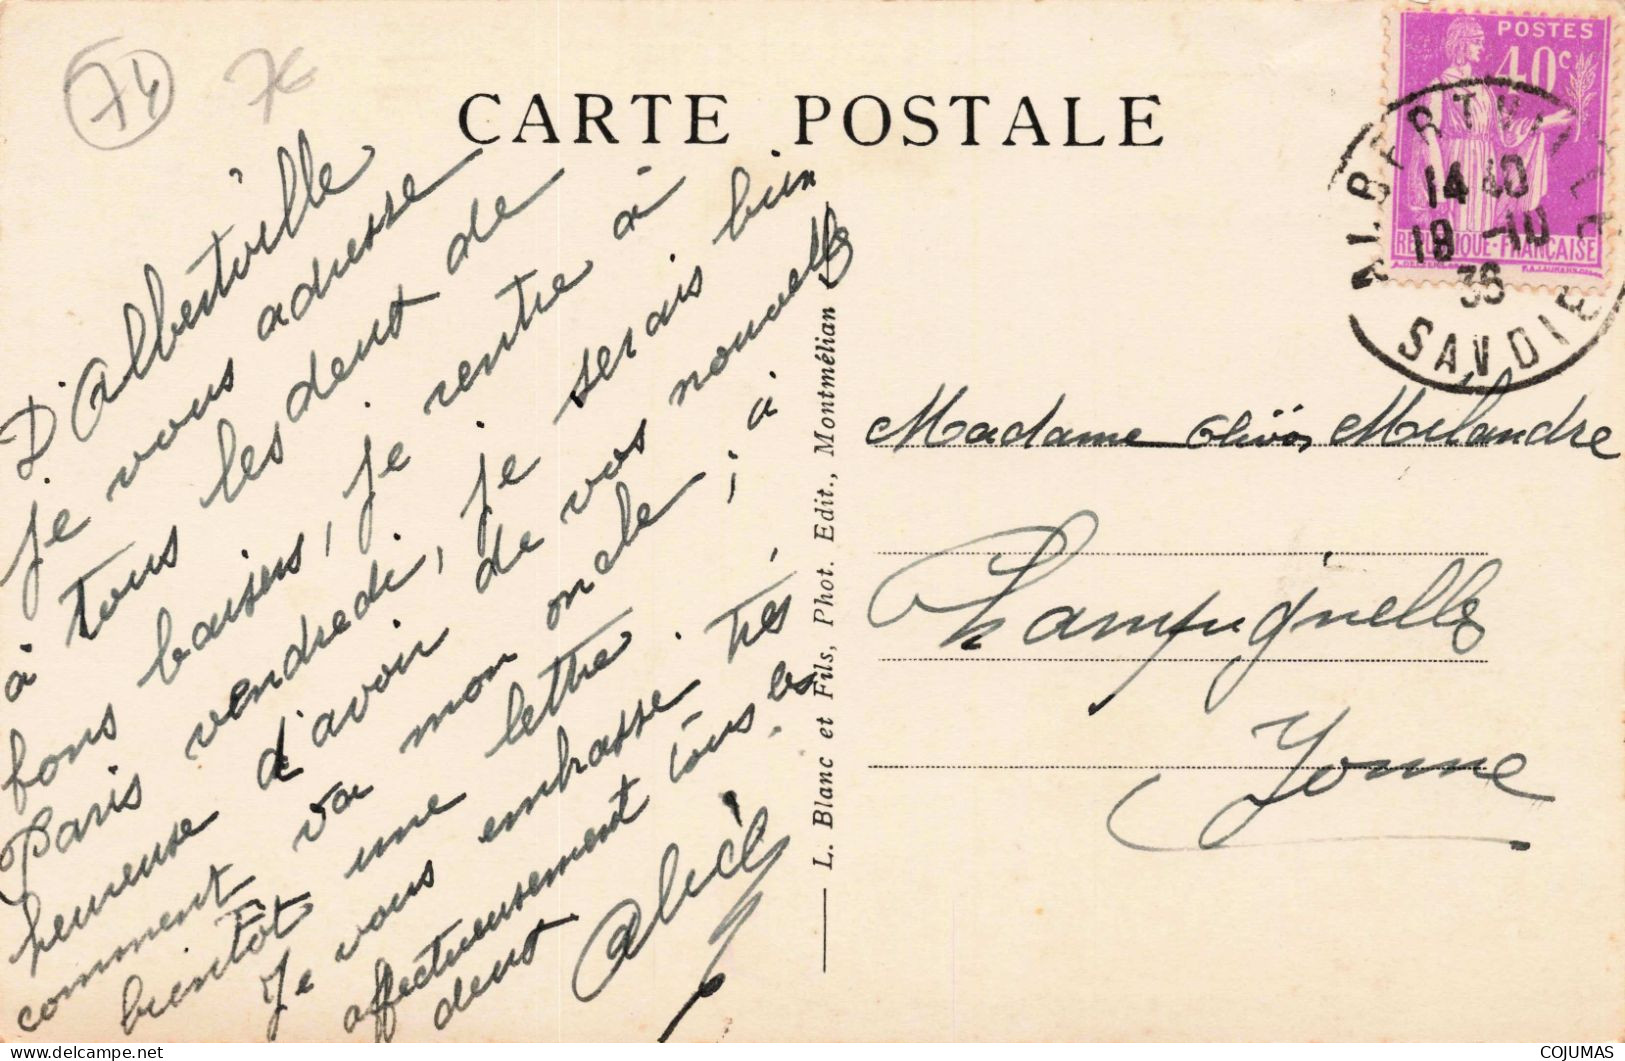 74
7€
CARTE POSTALE
POSTES
40c
REPUBLIQUE·FRANÇAISE
ALBERTVILLE
14 40
19 -10
36
SAVOIE
D'Albertville
je vous adresse
à tous les deux de
bons baisers, je rentre à
Paris vendredi, je serais bien
heureuse d'avoir de vos nouvelles
comment va mon oncle ; à
bientôt une lettre. très
Je vous embrasse
affectueusement tous les
deux
Alice
L. Blanc et Fils, Phot. Edit., Montmélian
Madame Milandre
Champignelles
Yonne
COJUMAS